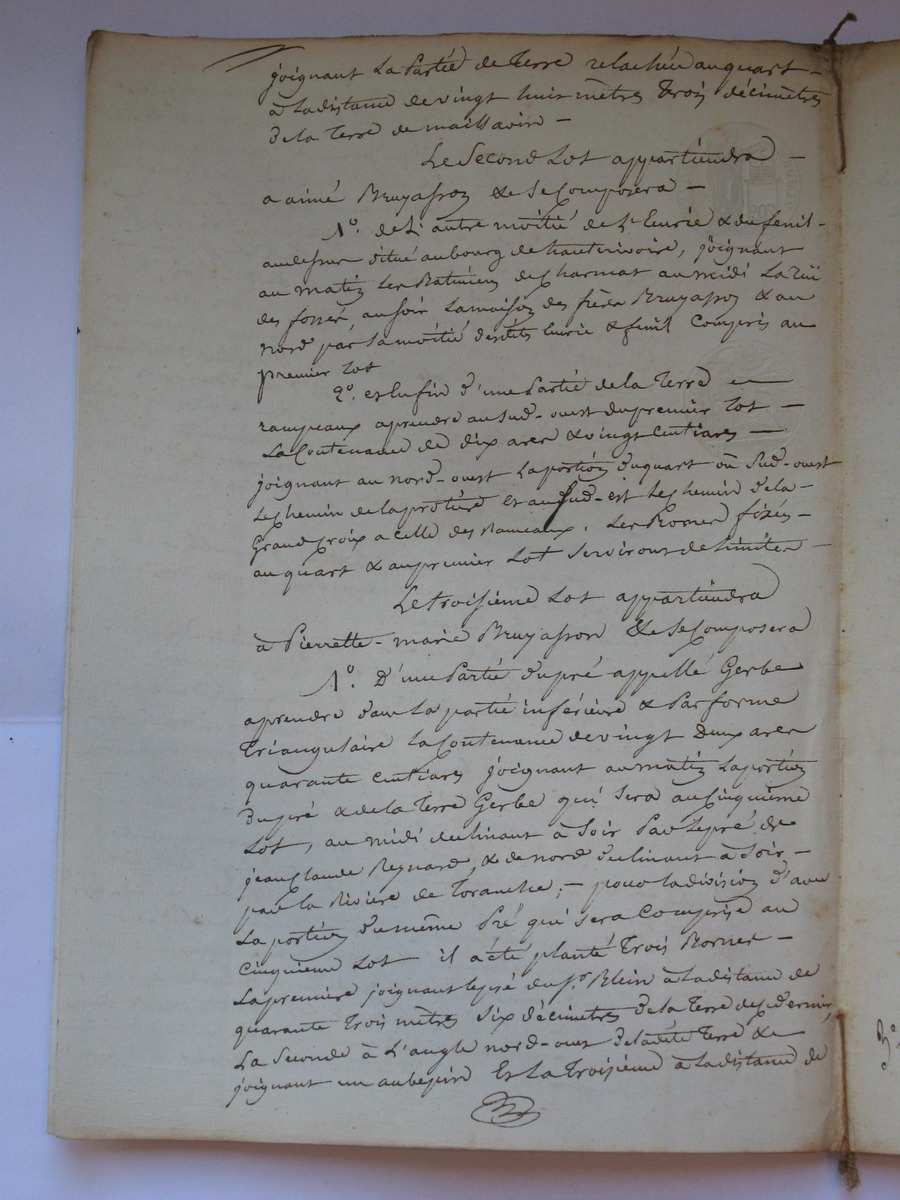 joignant La Partie de Terre relachée au quart –
à la distance de vingt huit mètres Trois décimètres
de la Terre de maillavin –
Le Second Lot appartiendra –
a aimé Bruyasson & se Composera –
1º. de L'autre moitié de L'Eurie & du fenil –
au dessus situé au bourg de hauterivoire, joignant
au matin Les Batimens de Charmat au midi La rüe
des fossés, au soir La maison des frères Bruyasson & au
nord par La moitié desdits Eurie & fenil Compris au
premier Lot
2º. et Enfin d'une Partie de la Terre –
rampeaux a prendre au Sud-ouest du premier Lot –
La Contenance de dix ares & vingt Centiares –
joignant au nord-ouest La portion du quart où Sud-ouest
Le Chemin de la Et au Sud-est Le Chemin de la –
Grand Croix a Celle des Rameaux. Les Bornes fixées –
au quart & au premier Lot Serviront de Limites –
Le troisieme Lot appartiendra
à Pierrette-marie Bruyasson & se Composera
1º. D'une Partie du pré appellé Gerbe
a prendre dans La partie inférieure & Par forme
Triangulaire La Contenance de vingt Deux ares
quarante Centiares joignant au matin La portion
du pré & de la Terre Gerbe qui Sera au Cinquième
Lot, au midi declinant à Soir Par Le pré de
jean Claude Reynard, & de nord declinant à Soir –
par La Rivière de Toranche; – pour la division d'avec
La portion du même Pré qui Sera Comprise au
Cinquieme Lot il a été planté Trois Bornes –
La première joignant Le pré du Sr. Blein à La distance de
quarante Trois mètres Six décimètres de la Terre de ce dernier,
La Seconde à L'angle nord-ouest de ladite Terre &
joignant un aubepin Et La Troisième à La distance de
3º.